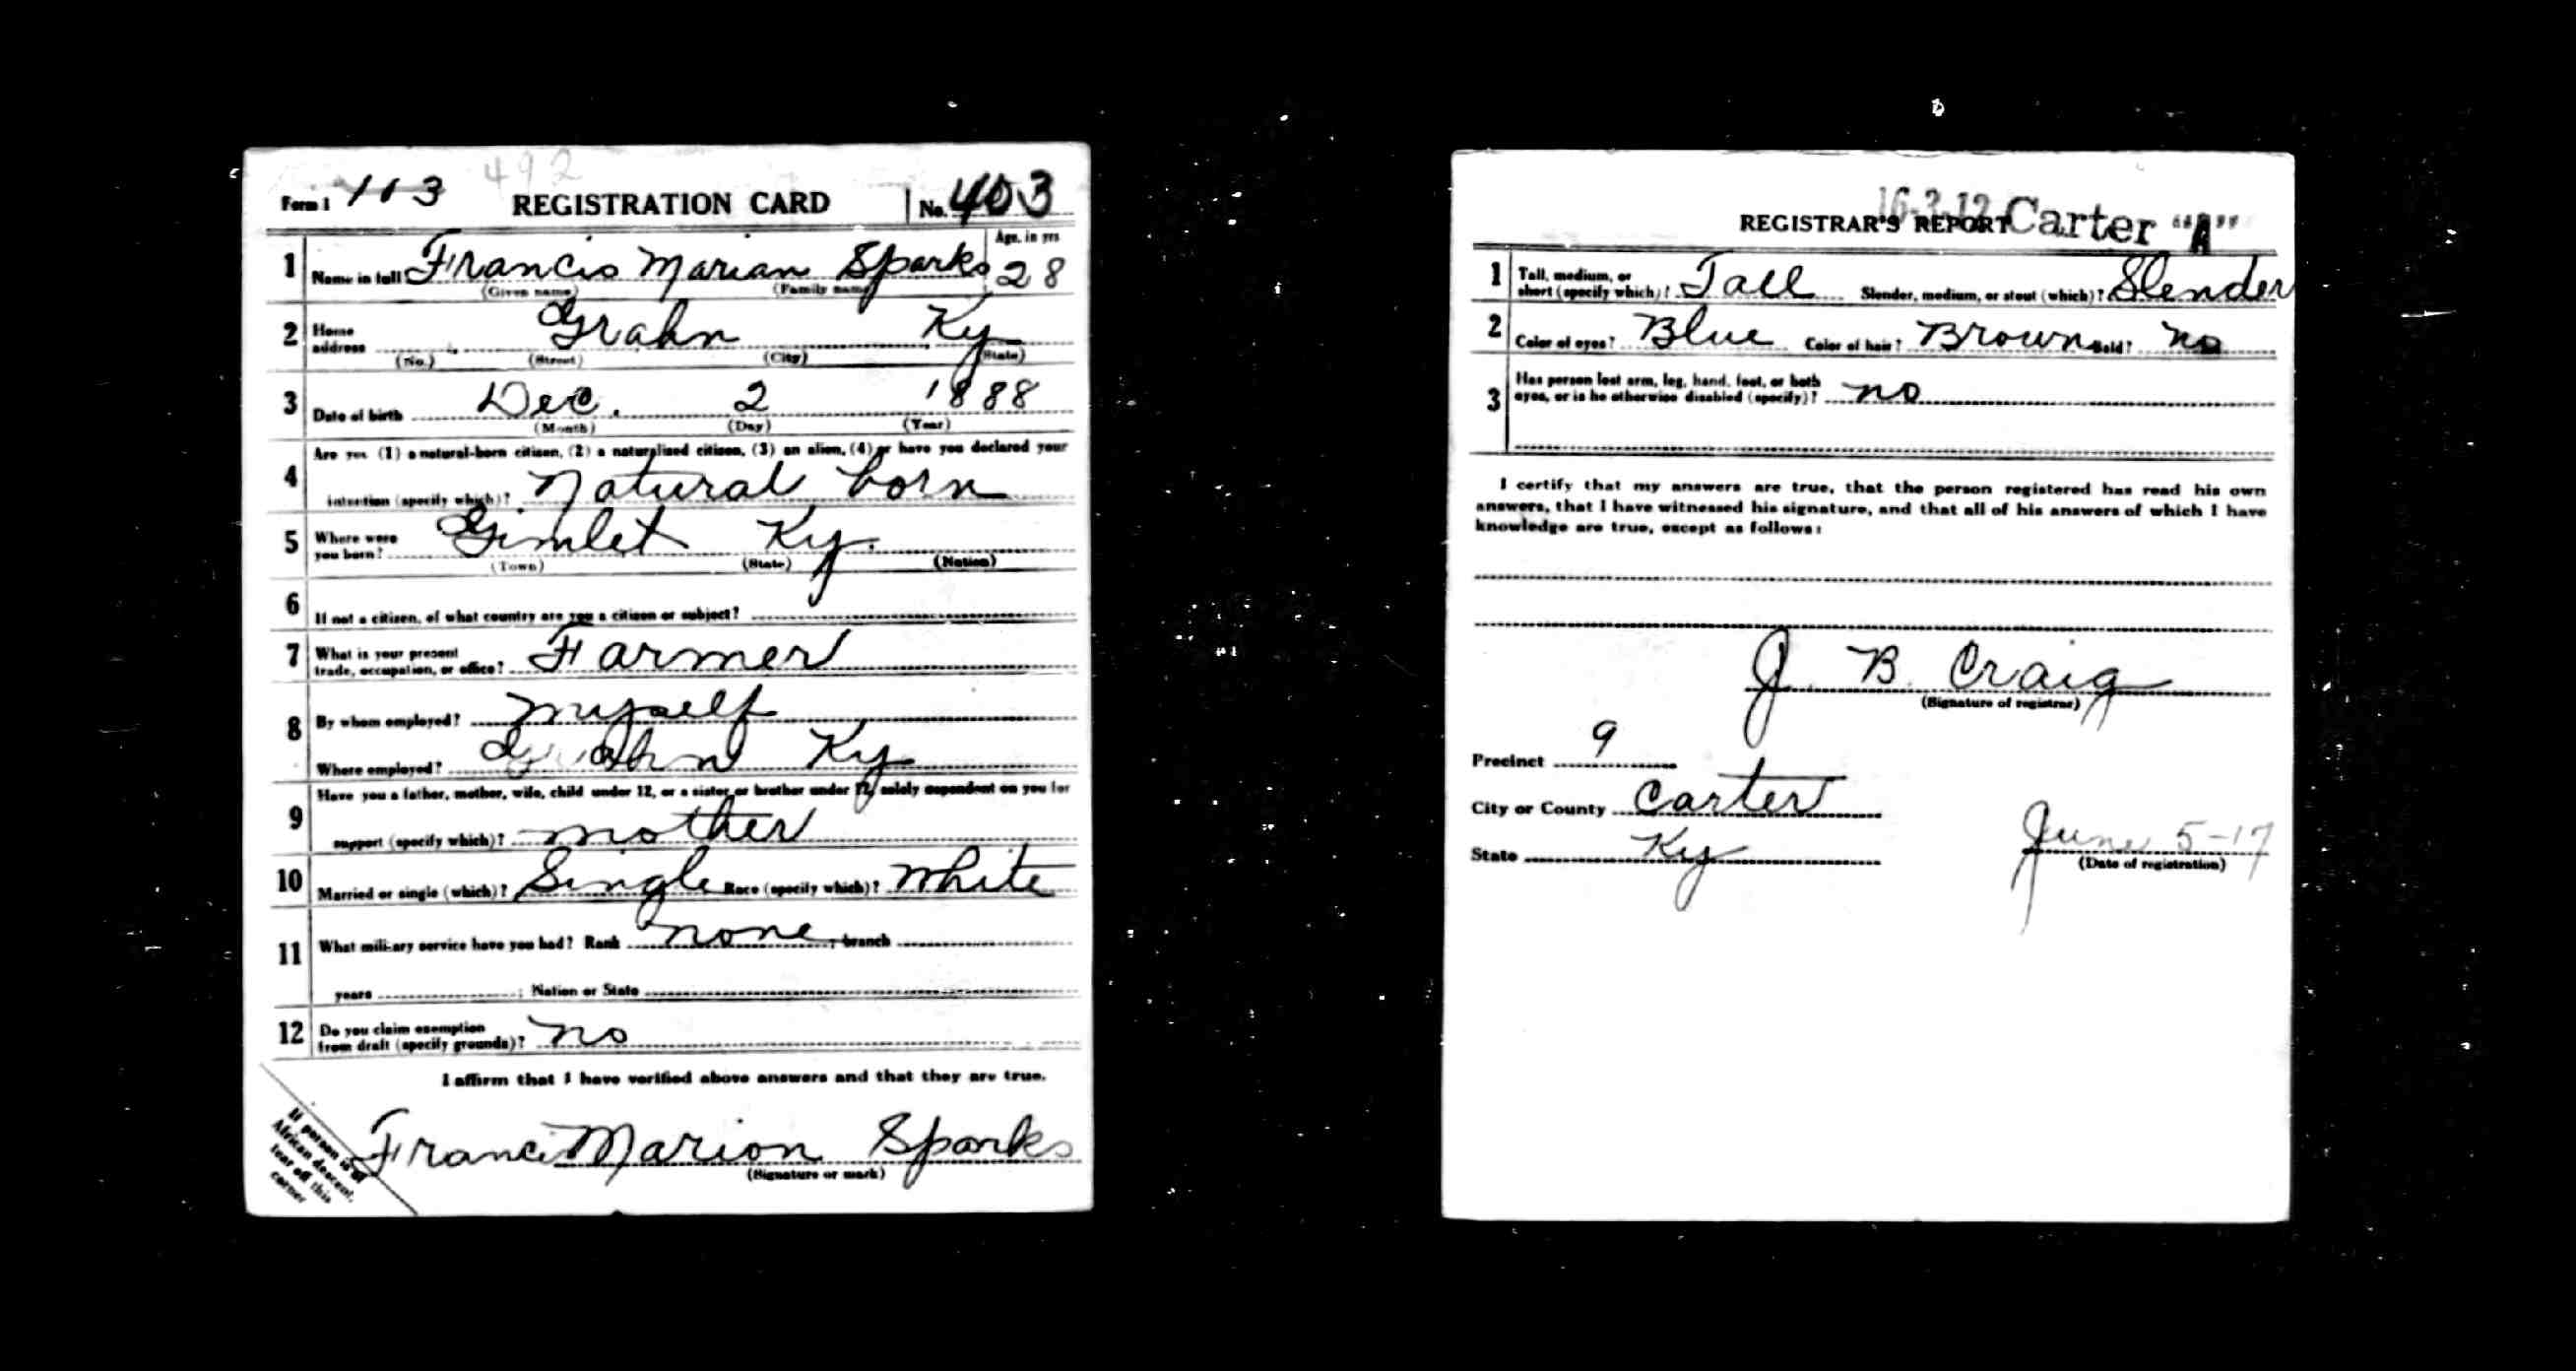 492
Form 1 113 REGISTRATION CARD No. 403
1 Name in full Francis Marian Sparks Age, in yrs 28
(Given name) (Family name)
2 Home address Grahn Ky
(No.) (Street) (City) (State)
3 Date of birth Dec. 2 1888
(Month) (Day) (Year)
4 Are you (1) a natural-born citizen, (2) a naturalized citizen, (3) an alien, (4) or have you declared your
intention (specify which)? Natural born
5 Where were you born? Gimlet Ky.
(Town) (State) (Nation)
6 If not a citizen, of what country are you a citizen or subject?
7 What is your present trade, occupation, or office? Farmer
8 By whom employed? myself
Where employed? Grahn Ky
9 Have you a father, mother, wife, child under 12, or a sister or brother under 12, solely dependent on you for
support (specify which)? mother
10 Married or single (which)? Single Race (specify which)? White
11 What military service have you had? Rank none ; branch
years ; Nation or State
12 Do you claim exemption from draft (specify grounds)? no
I affirm that I have verified above answers and that they are true.
Francis Marion Sparks
(Signature or mark)
If person is of
African descent,
tear off this
corner
16-3-12
REGISTRAR'S REPORT Carter "A"
1 Tall, medium, or short (specify which)? Tall Slender, medium, or stout (which)? Slender
2 Color of eyes? Blue Color of hair? Brown Bald? no
3 Has person lost arm, leg, hand, foot, or both
eyes, or is he otherwise disabled (specify)? no
I certify that my answers are true, that the person registered has read his own
answers, that I have witnessed his signature, and that all of his answers of which I have
knowledge are true, except as follows:
J. B. Craig
(Signature of registrar)
Precinct 9
City or County Carter
State Ky
June 5-17
(Date of registration)